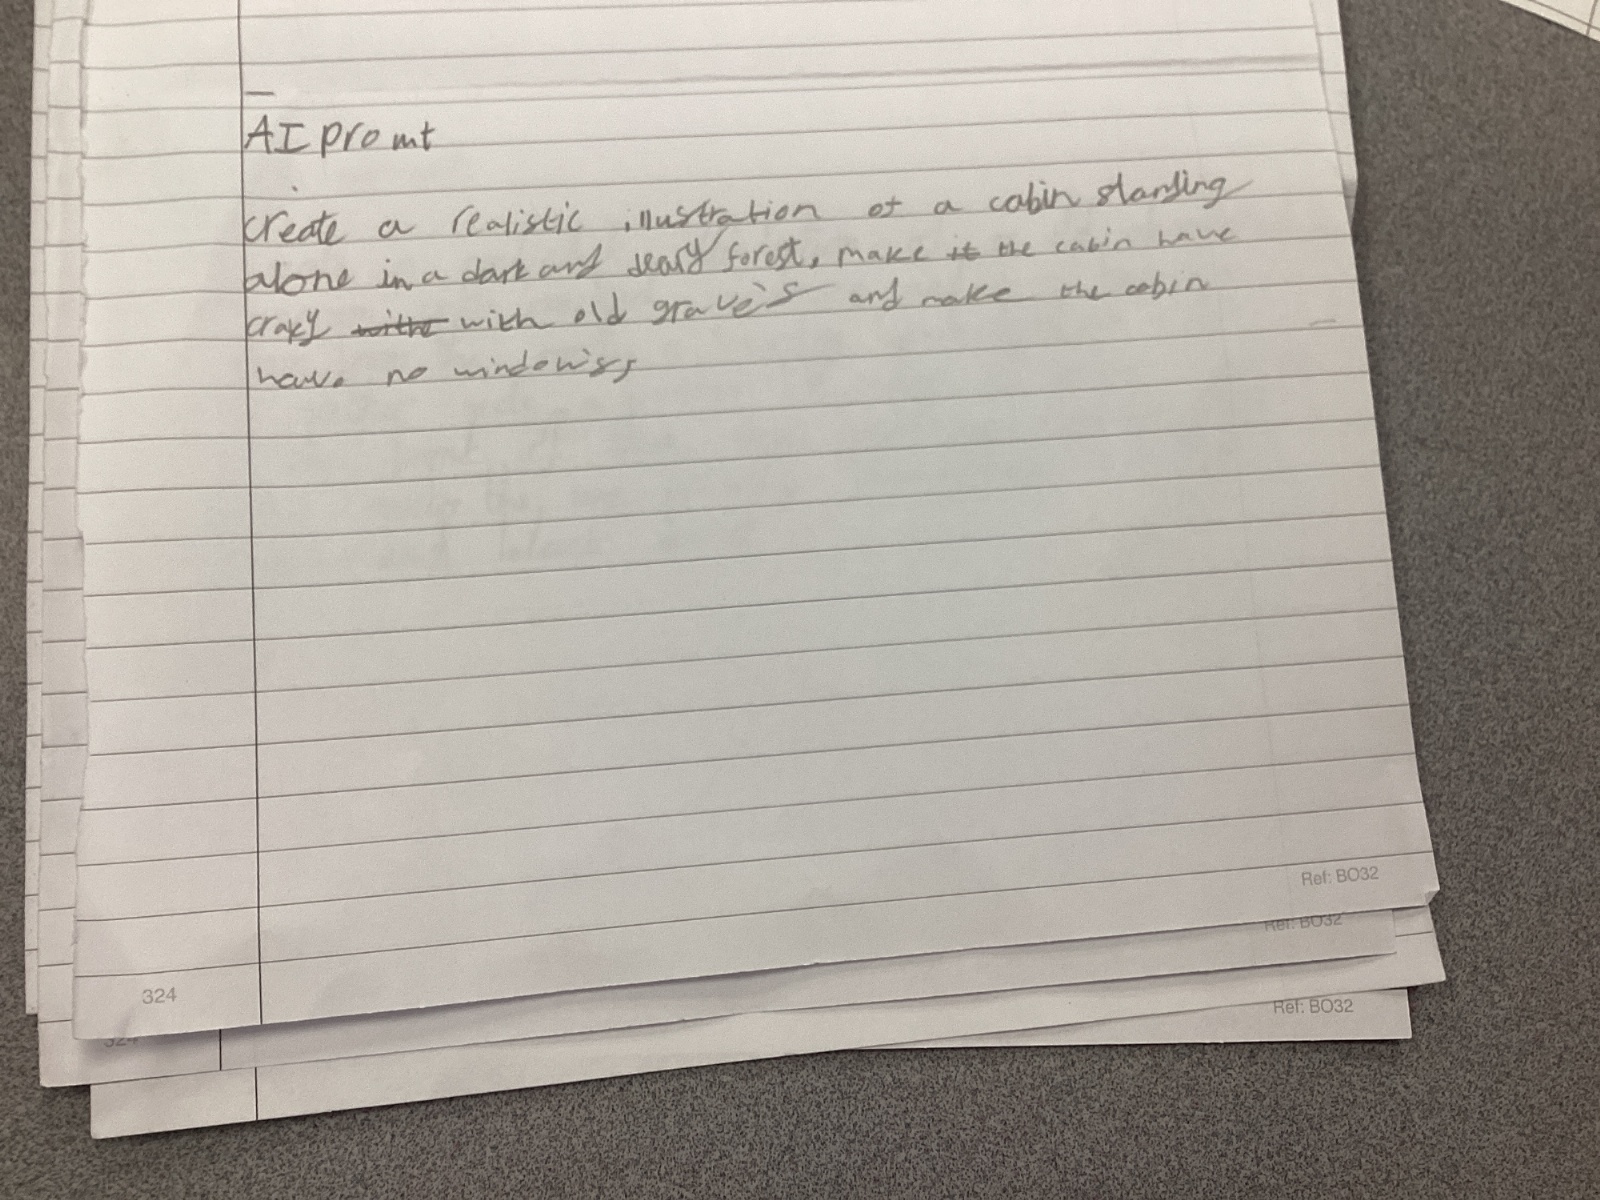 AI promt
create a realistic illustration of a cabin standing
alone in a dark and deary forest, make it the cabin have
craky with with old grave's and make the cabin
have no window's,
Ref: BO32
Ref: BO32
324
Ref: BO32
324